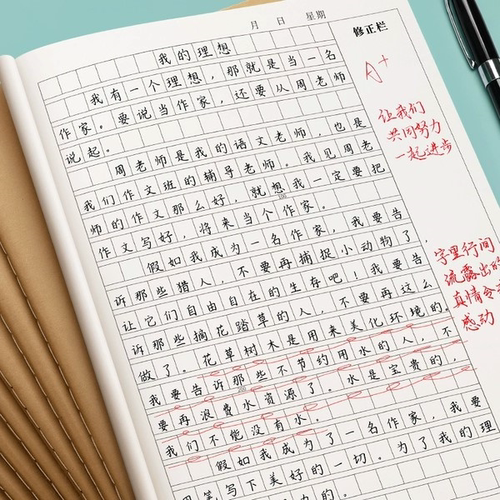 月 日 星期
修正栏
我的理想
我有一个理想，那就是当一名
作家。要说当作家，还要从周老师
说起。
周老师是我的语文老师，也是
我们作文班的辅导老师。我见周老
师的作文那么好，就想我一定要把
作文写好，将来当个作家。
假如我成为一名作家，我要告
诉那些猎人，不要再捕捉小动物了，
让它们自由自在的生存吧！我要告
诉那些摘花踏草的人，不要再这么
做了。花草树木是用来美化环境的。
我要告诉那些不节约用水的人，不
要再浪费水资源了。水是宝贵的，
我们不能没有水。
假如我成为了一名作家，我要
用笔写下美好的一切。为了我的理
A+
让我们
共同努力
一起进步
字里行间
流露出的
真情
感动